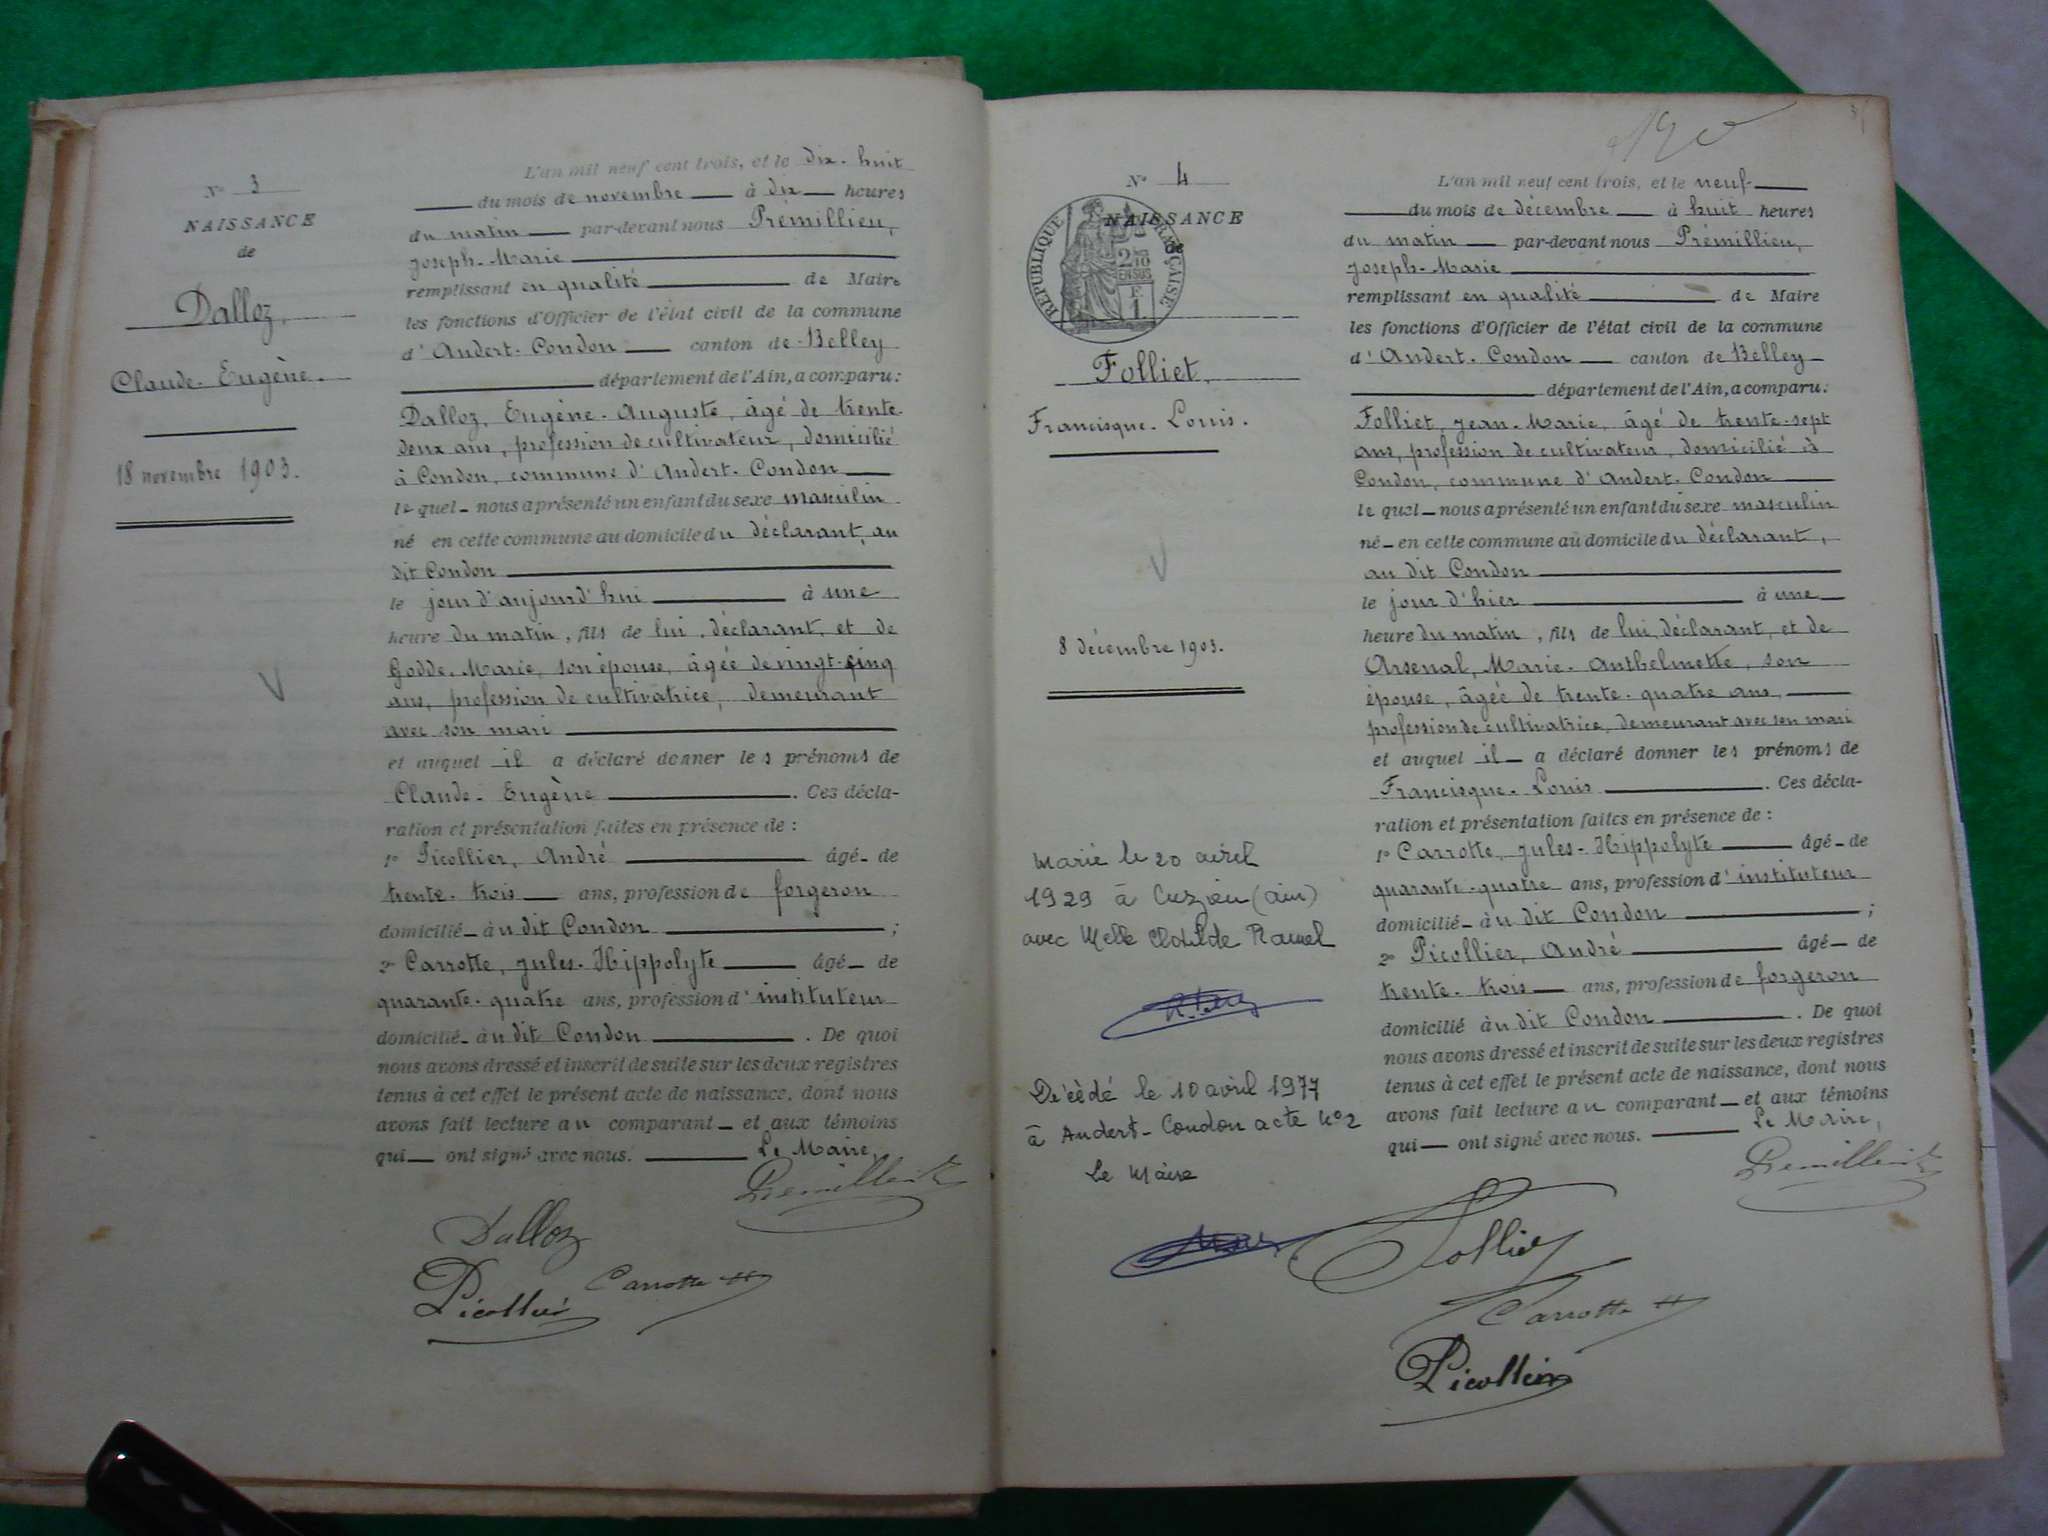 N° 3
NAISSANCE
de
Dalloz,
Claude-Eugène.
18 novembre 1903.
L'an mil neuf cent trois, et le dix-huit
du mois de novembre à dix heures
du matin par-devant nous Prémillieu,
Joseph-Marie
remplissant en qualité de Maire
les fonctions d'Officier de l'état civil de la commune
d'Andert-Condon canton de Belley
département de l'Ain, a comparu:
Dalloz, Eugène-Auguste, âgé de trente-
deux ans, profession de cultivateur, domicilié
à Condon, commune d'Andert-Condon
lequel nous a présenté un enfant du sexe masculin
né en cette commune au domicile du déclarant, au
dit Condon
le jour d'aujourd'hui à une
heure du matin, fils de lui, déclarant, et de
Godde, Marie, son épouse, âgée de vingt-cinq
ans, profession de cultivatrice, demeurant
avec son mari
et auquel il a déclaré donner les prénoms de
Claude-Eugène. Ces décla-
ration et présentation faites en présence de :
1° Picollier, André âgé de
trente-trois ans, profession de forgeron
domicilié au dit Condon ;
2° Carrotte, Jules-Hippolyte âgé de
quarante-quatre ans, profession d'instituteur
domicilié au dit Condon. De quoi
nous avons dressé et inscrit de suite sur les deux registres
tenus à cet effet le présent acte de naissance, dont nous
avons fait lecture au comparant et aux témoins
qui ont signé avec nous. Le Maire,
Prémillieu
Dalloz
Carrotte
Picollier
N° 4
NAISSANCE
de
REPUBLIQUE FRANÇAISE
2/10 EN SUS
F. 1
Folliet,
Francisque-Louis.
8 décembre 1903.
Marié le 20 avril
1929 à Cuzieu (ain)
avec Melle Clotilde Ramel
Décédé le 10 avril 1977
à Andert-Condon acte N°2
Le Maire
L'an mil neuf cent trois, et le neuf
du mois de décembre à huit heures
du matin par-devant nous Prémillieu,
Joseph-Marie
remplissant en qualité de Maire
les fonctions d'Officier de l'état civil de la commune
d'Andert-Condon canton de Belley
département de l'Ain, a comparu:
Folliet, Jean-Marie, âgé de trente-sept
ans, profession de cultivateur, domicilié à
Condon, commune d'Andert-Condon
lequel nous a présenté un enfant du sexe masculin
né en cette commune au domicile du déclarant,
au dit Condon
le jour d'hier à une
heure du matin, fils de lui, déclarant, et de
Arsenal, Marie-Anthelmette, son
épouse, âgée de trente-quatre ans,
profession de cultivatrice, demeurant avec son mari
et auquel il a déclaré donner les prénoms de
Francisque-Louis. Ces décla-
ration et présentation faites en présence de :
1° Carrotte, Jules-Hippolyte âgé de
quarante-quatre ans, profession d'instituteur
domicilié au dit Condon ;
2° Picollier, André âgé de
trente-trois ans, profession de forgeron
domicilié au dit Condon. De quoi
nous avons dressé et inscrit de suite sur les deux registres
tenus à cet effet le présent acte de naissance, dont nous
avons fait lecture au comparant et aux témoins
qui ont signé avec nous. Le Maire,
Prémillieu
Folliet
Carrotte
Picollier